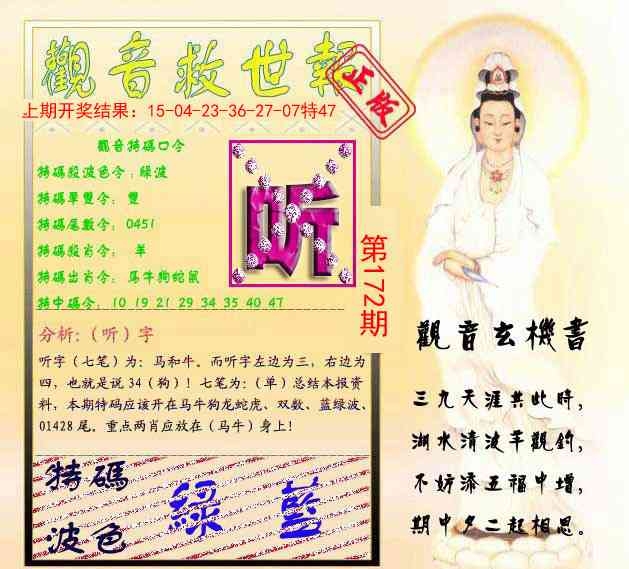 觀音救世報
正版
上期开奖结果：15-04-23-36-27-07特47
觀音特碼口令
特碼殺波色令：綠波
特碼單雙令： 雙
特碼尾數令： 0451
特碼殺肖令： 羊
特碼出肖令： 馬牛狗蛇鼠
特中碼令： 10 19 21 29 34 35 40 47
听
第172期
分析:（听）字
听字（七笔）为：马和牛。而听字左边为三，右边为
四，也就是说 34（狗）！七笔为:（单）总结本报资
料，本期特码应该开在马牛狗龙蛇虎、双数、蓝绿波、
01428 尾。重点两肖应放在（马牛）身上！
特碼
波色
綠 藍
觀音玄機書
三九天涯共此時，
湖水清波羊觀釣，
不妨添五福中增，
期中夕二起相思。